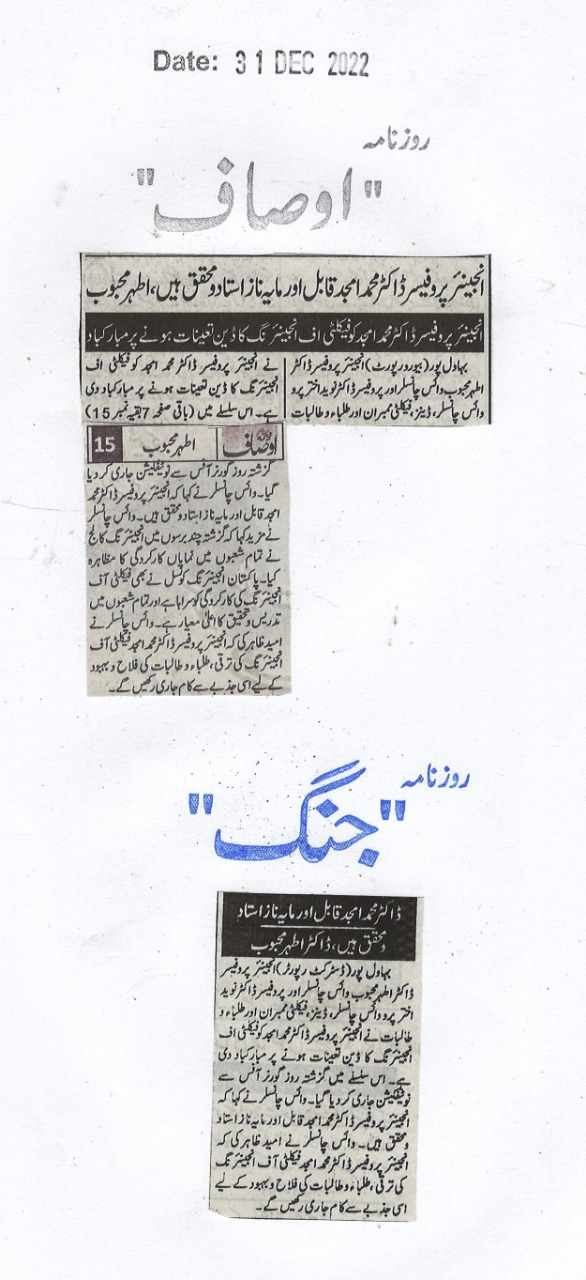 Date: 31 DEC 2022
روزنامہ
"اوصاف"
انجینئر پروفیسر ڈاکٹر محمد امجد قابل اور مایہ ناز استاد و محقق ہیں، اطہر محبوب
انجینئر پروفیسر ڈاکٹر محمد امجد کو فیکلٹی اف انجینئرنگ کا ڈین تعینات ہونے پر مبارکباد
بہاول پور (بیورورپورٹ) انجینئر پروفیسر ڈاکٹر
اطہر محبوب وائس چانسلر اور پروفیسر ڈاکٹر نوید اختر پرو
وائس چانسلر، ڈینز، فیکلٹی ممبران اور طلباء و طالبات
نے انجینئر پروفیسر ڈاکٹر محمد امجد کو فیکلٹی اف
انجینئرنگ کا ڈین تعینات ہونے پر مبارکباد دی
ہے۔ اس سلسلے میں (باقی صفحہ 7 بقیہ نمبر 15)
اوصاف اطہر محبوب 15
گزشتہ روز گورنر آفس سے نوٹیفکیشن جاری کر دیا
گیا۔ وائس چانسلر نے کہا کہ انجینئر پروفیسر ڈاکٹر محمد
امجد قابل اور مایہ ناز استاد و محقق ہیں۔ وائس چانسلر
نے مزید کہا کہ گزشتہ چند برسوں میں انجینئرنگ کالج
نے تمام شعبوں میں نمایاں کارکردگی کا مظاہرہ
کیا۔ پاکستان انجینئرنگ کونسل نے بھی فیکلٹی آف
انجینئرنگ کی کارکردگی کو سراہا ہے اور تمام شعبوں میں
تدریس و تحقیق کا اعلیٰ معیار ہے۔ وائس چانسلر نے
امید ظاہر کی کہ انجینئر پروفیسر ڈاکٹر محمد امجد فیکلٹی آف
انجینئرنگ کی ترقی، طلباء و طالبات کی فلاح و بہبود
کے لیے اسی جذبے سے کام جاری رکھیں گے۔
روزنامہ
"جنگ"
ڈاکٹر محمد امجد قابل اور مایہ ناز استاد
و محقق ہیں، ڈاکٹر اطہر محبوب
بہاول پور (ڈسٹرکٹ رپورٹر) انجینئر پروفیسر
ڈاکٹر اطہر محبوب وائس چانسلر اور پروفیسر ڈاکٹر نوید
اختر پرو وائس چانسلر، ڈینز، فیکلٹی ممبران اور طلباء و
طالبات نے انجینئر پروفیسر ڈاکٹر محمد امجد کو فیکلٹی اف
انجینئرنگ کا ڈین تعینات ہونے پر مبارکباد دی
ہے۔ اس سلسلے میں گزشتہ روز گورنر آفس سے
نوٹیفکیشن جاری کر دیا گیا۔ وائس چانسلر نے کہا کہ
انجینئر پروفیسر ڈاکٹر محمد امجد قابل اور مایہ ناز استاد
و محقق ہیں۔ وائس چانسلر نے امید ظاہر کی کہ
انجینئر پروفیسر ڈاکٹر محمد امجد فیکلٹی آف انجینئرنگ
کی ترقی، طلباء و طالبات کی فلاح و بہبود کے لیے
اسی جذبے سے کام جاری رکھیں گے۔